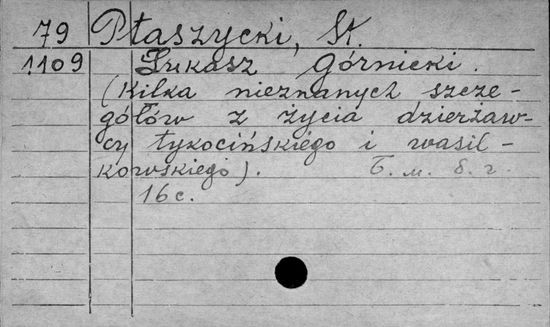 79 Ptaszycki, St.
1109 Łukasz Górnicki.
(Kilka nieznanych szcze-
gółów z życia dzierżaw-
cy tykocińskiego i wasil-
kowskiego). Б. м. б. г.
16 с.